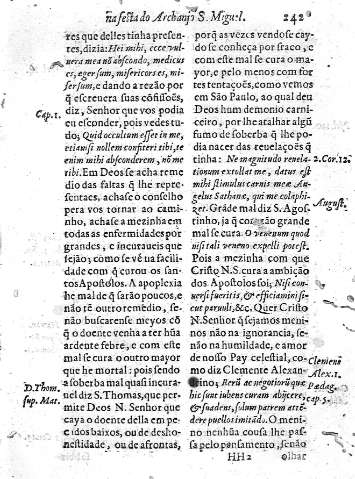 na festa do Archanjo S. Miguel. 242
res que delles tinha presen-
tes, dizia: Hei mihi, ecce vul-
nera mea nõ abscondo, medicus
es, æger sum, misericors es, mi-
ser sum, e dando a rezão por
q̃ escreuera suas cõfissoẽs,
diz, Senhor que vos podia
eu esconder, pois vedes tu-
do; Quid occultum esset in me,
etiamsi nollem confiteri tibi, te
enim mihi absconderem, nõ me
tibi. Em Deos se acha reme
dio das faltas q̃ lhe repre-
sentaes, achase o conselho
pera vos tornar ao cami-
nho, achase a mezinha em
todas as enfermidades por
grandes, e incuraueis que
sejão; como se vè na facili-
dade com q̃ curou os san-
tos Apostolos. A apoplexia
he mal de q̃ sarão poucos, e
não tẽ outro remedio, se-
não buscarense meyos cõ
q̃ o doente venha a ter hũa
ardente febre, e com este
mal se cura o outro mayor
que he mortal: pois sendo
a soberba mal quasi incura-
uel diz S. Thomas, que per
mite Deos N. Senhor que
caya o doente della em pe-
cados baixos, ou de desho-
nestidade, ou de afrontas,
Cap. 1.
D. Thom.
sup. Mat.
porq̃ as vezes vendose cay-
do se conheça por fraco, e
com este mal se cura o ma-
yor, e pelo menos com for
tes tentaçoẽs, como vemos
em São Paulo, ao qual deu
Deos hum demonio carni-
ceiro, por lhe atalhar algũ
fumo de soberba q̃ lhe po-
dia nacer das reuelaçoẽs q̃
tinha: Ne magnitudo reuela-
tionum extollat me, datus est
mihi stimulus carnis meæ An-
gelus Sathanæ, qui me colaphi-
zet. Grãde mal diz S. Agos-
tinho, ja q̃ com tão grande
mal se cura. O venenum quod
nisi tali veneno expelli potest.
Pois a mezinha com que
Cristo N.S. cura a ambição
dos Apostolos foi; Nisi con-
uersi fueritis, & efficiamini si-
cut paruuli, &c. Quer Cristo
N. Senhor q̃ sejamos meni-
nos não na ignorancia, se-
não na humildade, e amor
de nosso Pay celestial, co-
mo diz Clemente Alexan-
drino; Rerũ ac negotiorũ que
hic suat iubens curam abijcere,
& suadens, solum patrem atte-
dere puellos imitãdo. O meni-
no nenhũa cousa lhe pas-
sa pelo pensamento, senão
2. Cor. 12.
August.
Clemens
Alex. 1.
Pædag.
cap. 5.
HH2 olhar